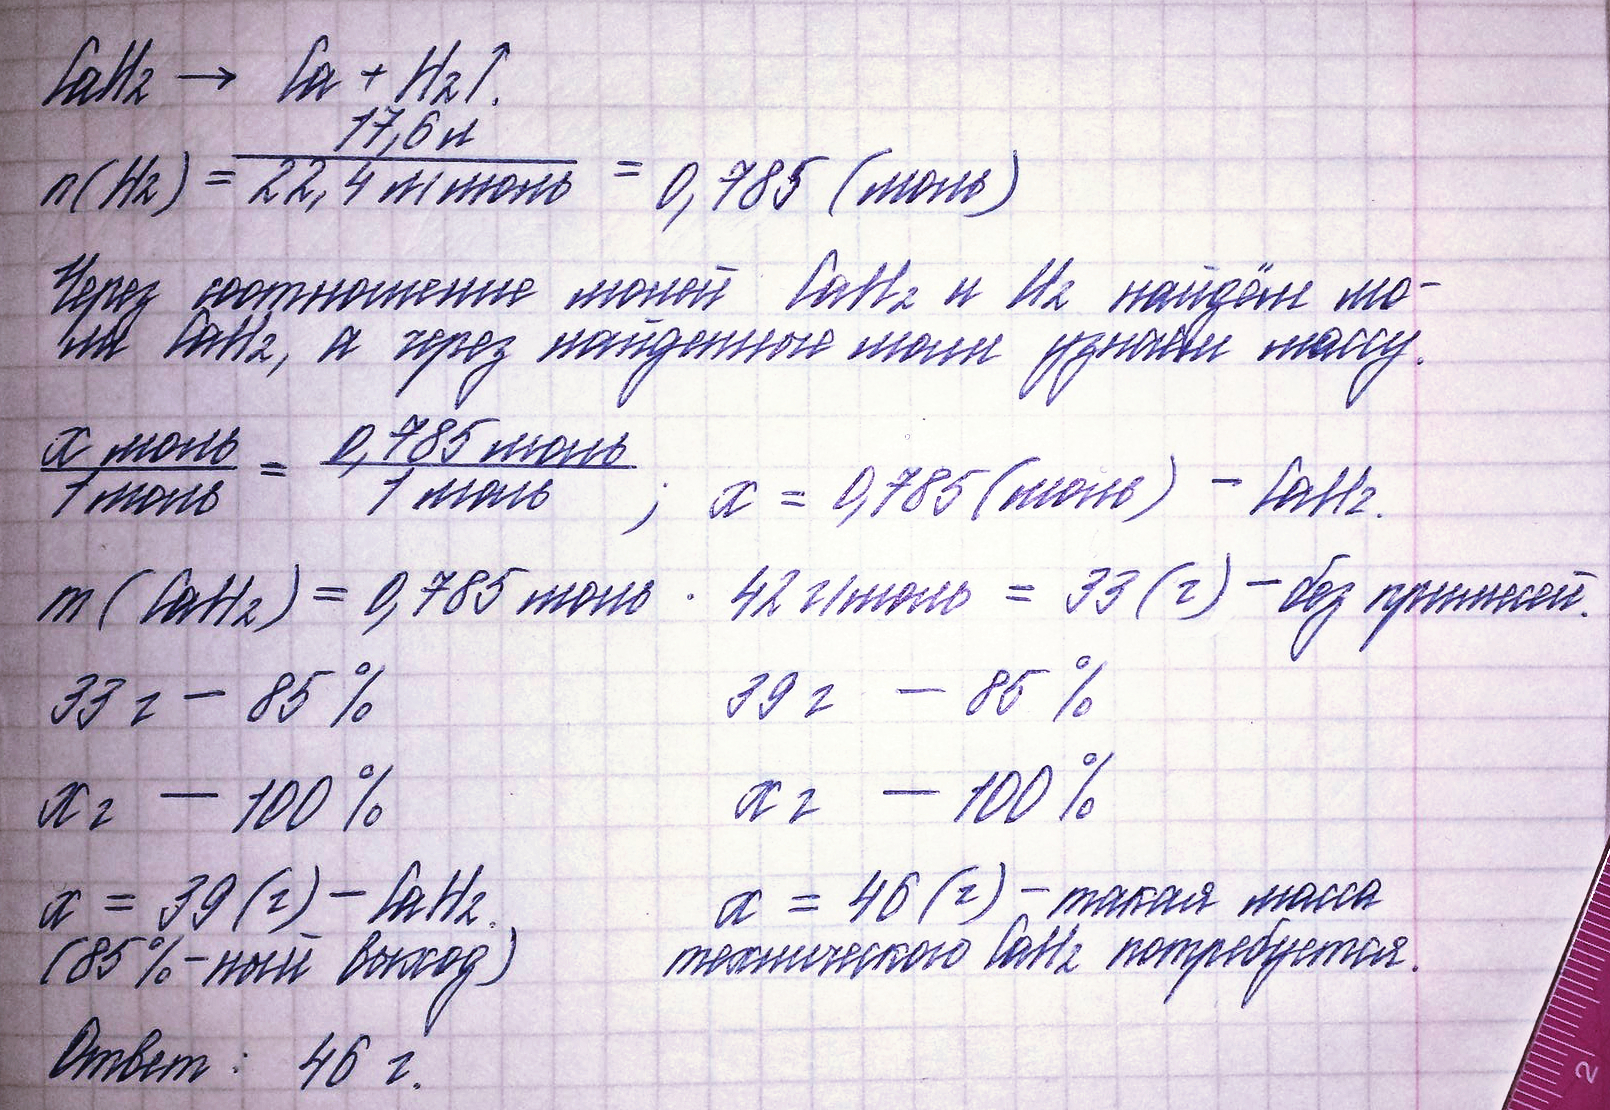 CaH2 → Ca + H2↑.
n(H2) = 17,6 л / 22,4 л/моль = 0,785 (моль)
Через соотношение молей CaH2 и H2 найдём мо-
ли CaH2, а через найденные моли узнаем массу.
x моль / 1 моль = 0,785 моль / 1 моль ; x = 0,785 (моль) – CaH2.
m (CaH2) = 0,785 моль · 42 г/моль = 33 (г) – без примесей.
33 г – 85 % 39 г – 85 %
x г – 100 % x г – 100 %
x = 39 (г) – CaH2. x = 46 (г) – такая масса
(85 %-ный выход) технического CaH2 потребуется.
Ответ : 46 г.
2